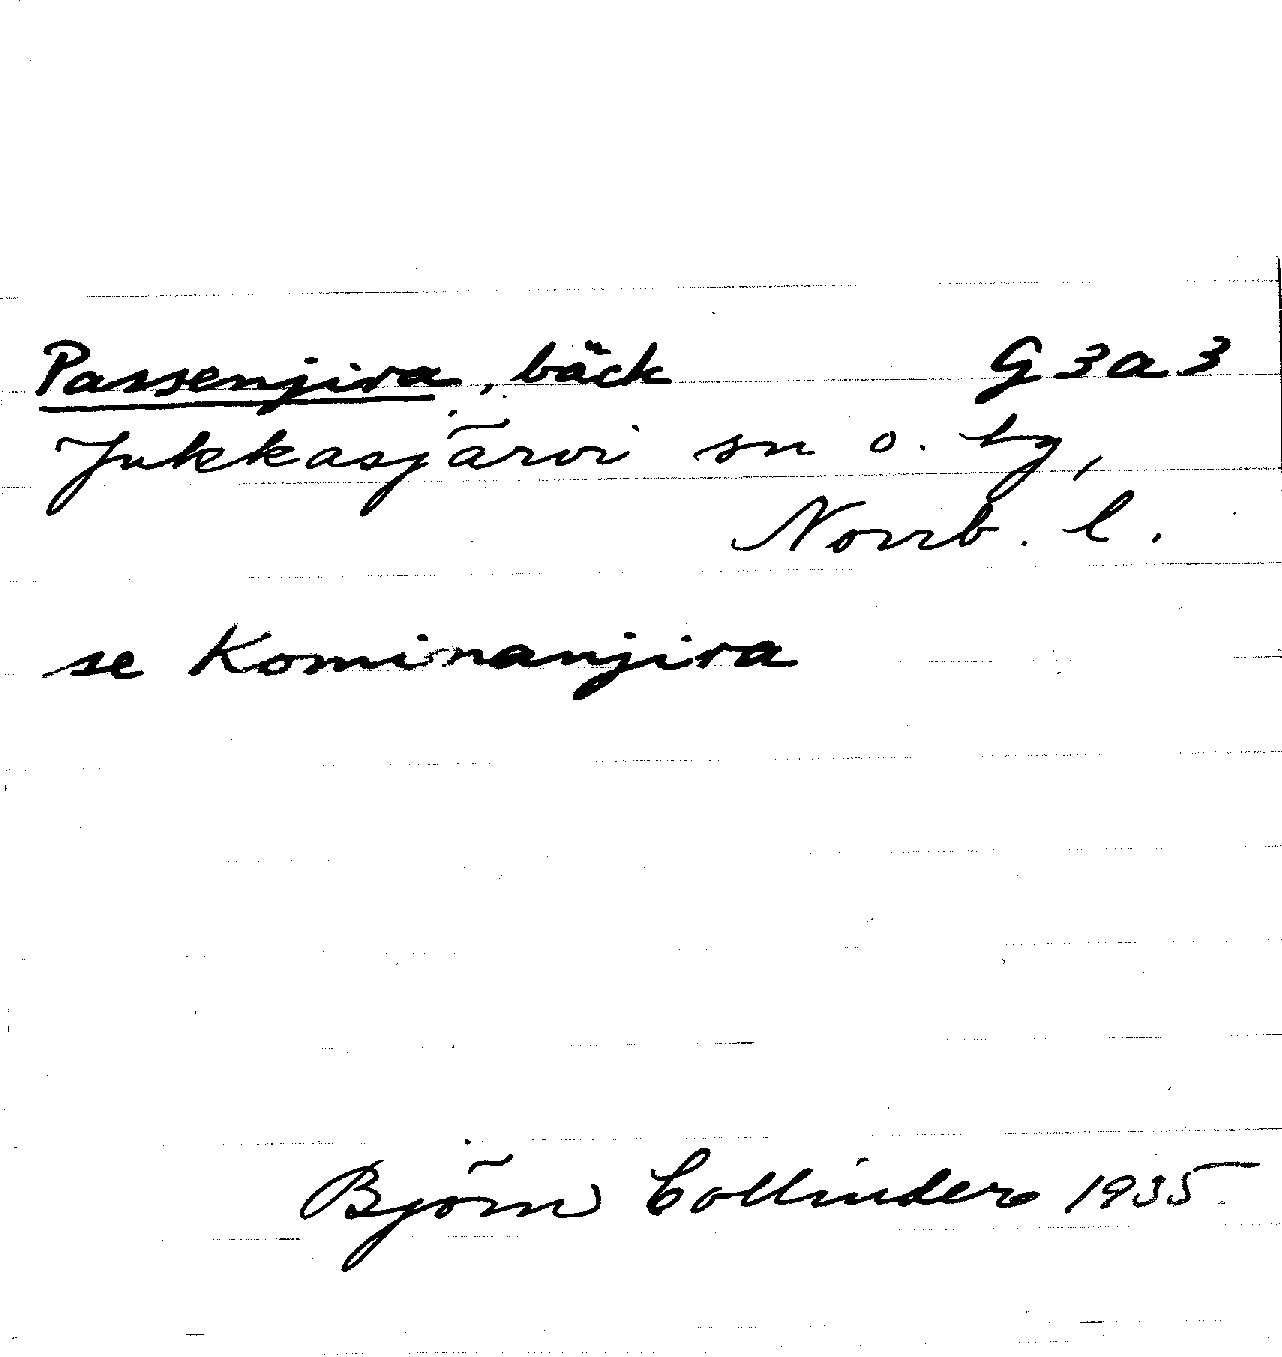 Passenjira, bäck G 3 a 3
Jukkasjärvi sn o. tg,
Norrb. l.
se Kominanjira
Björn Collinder 1935